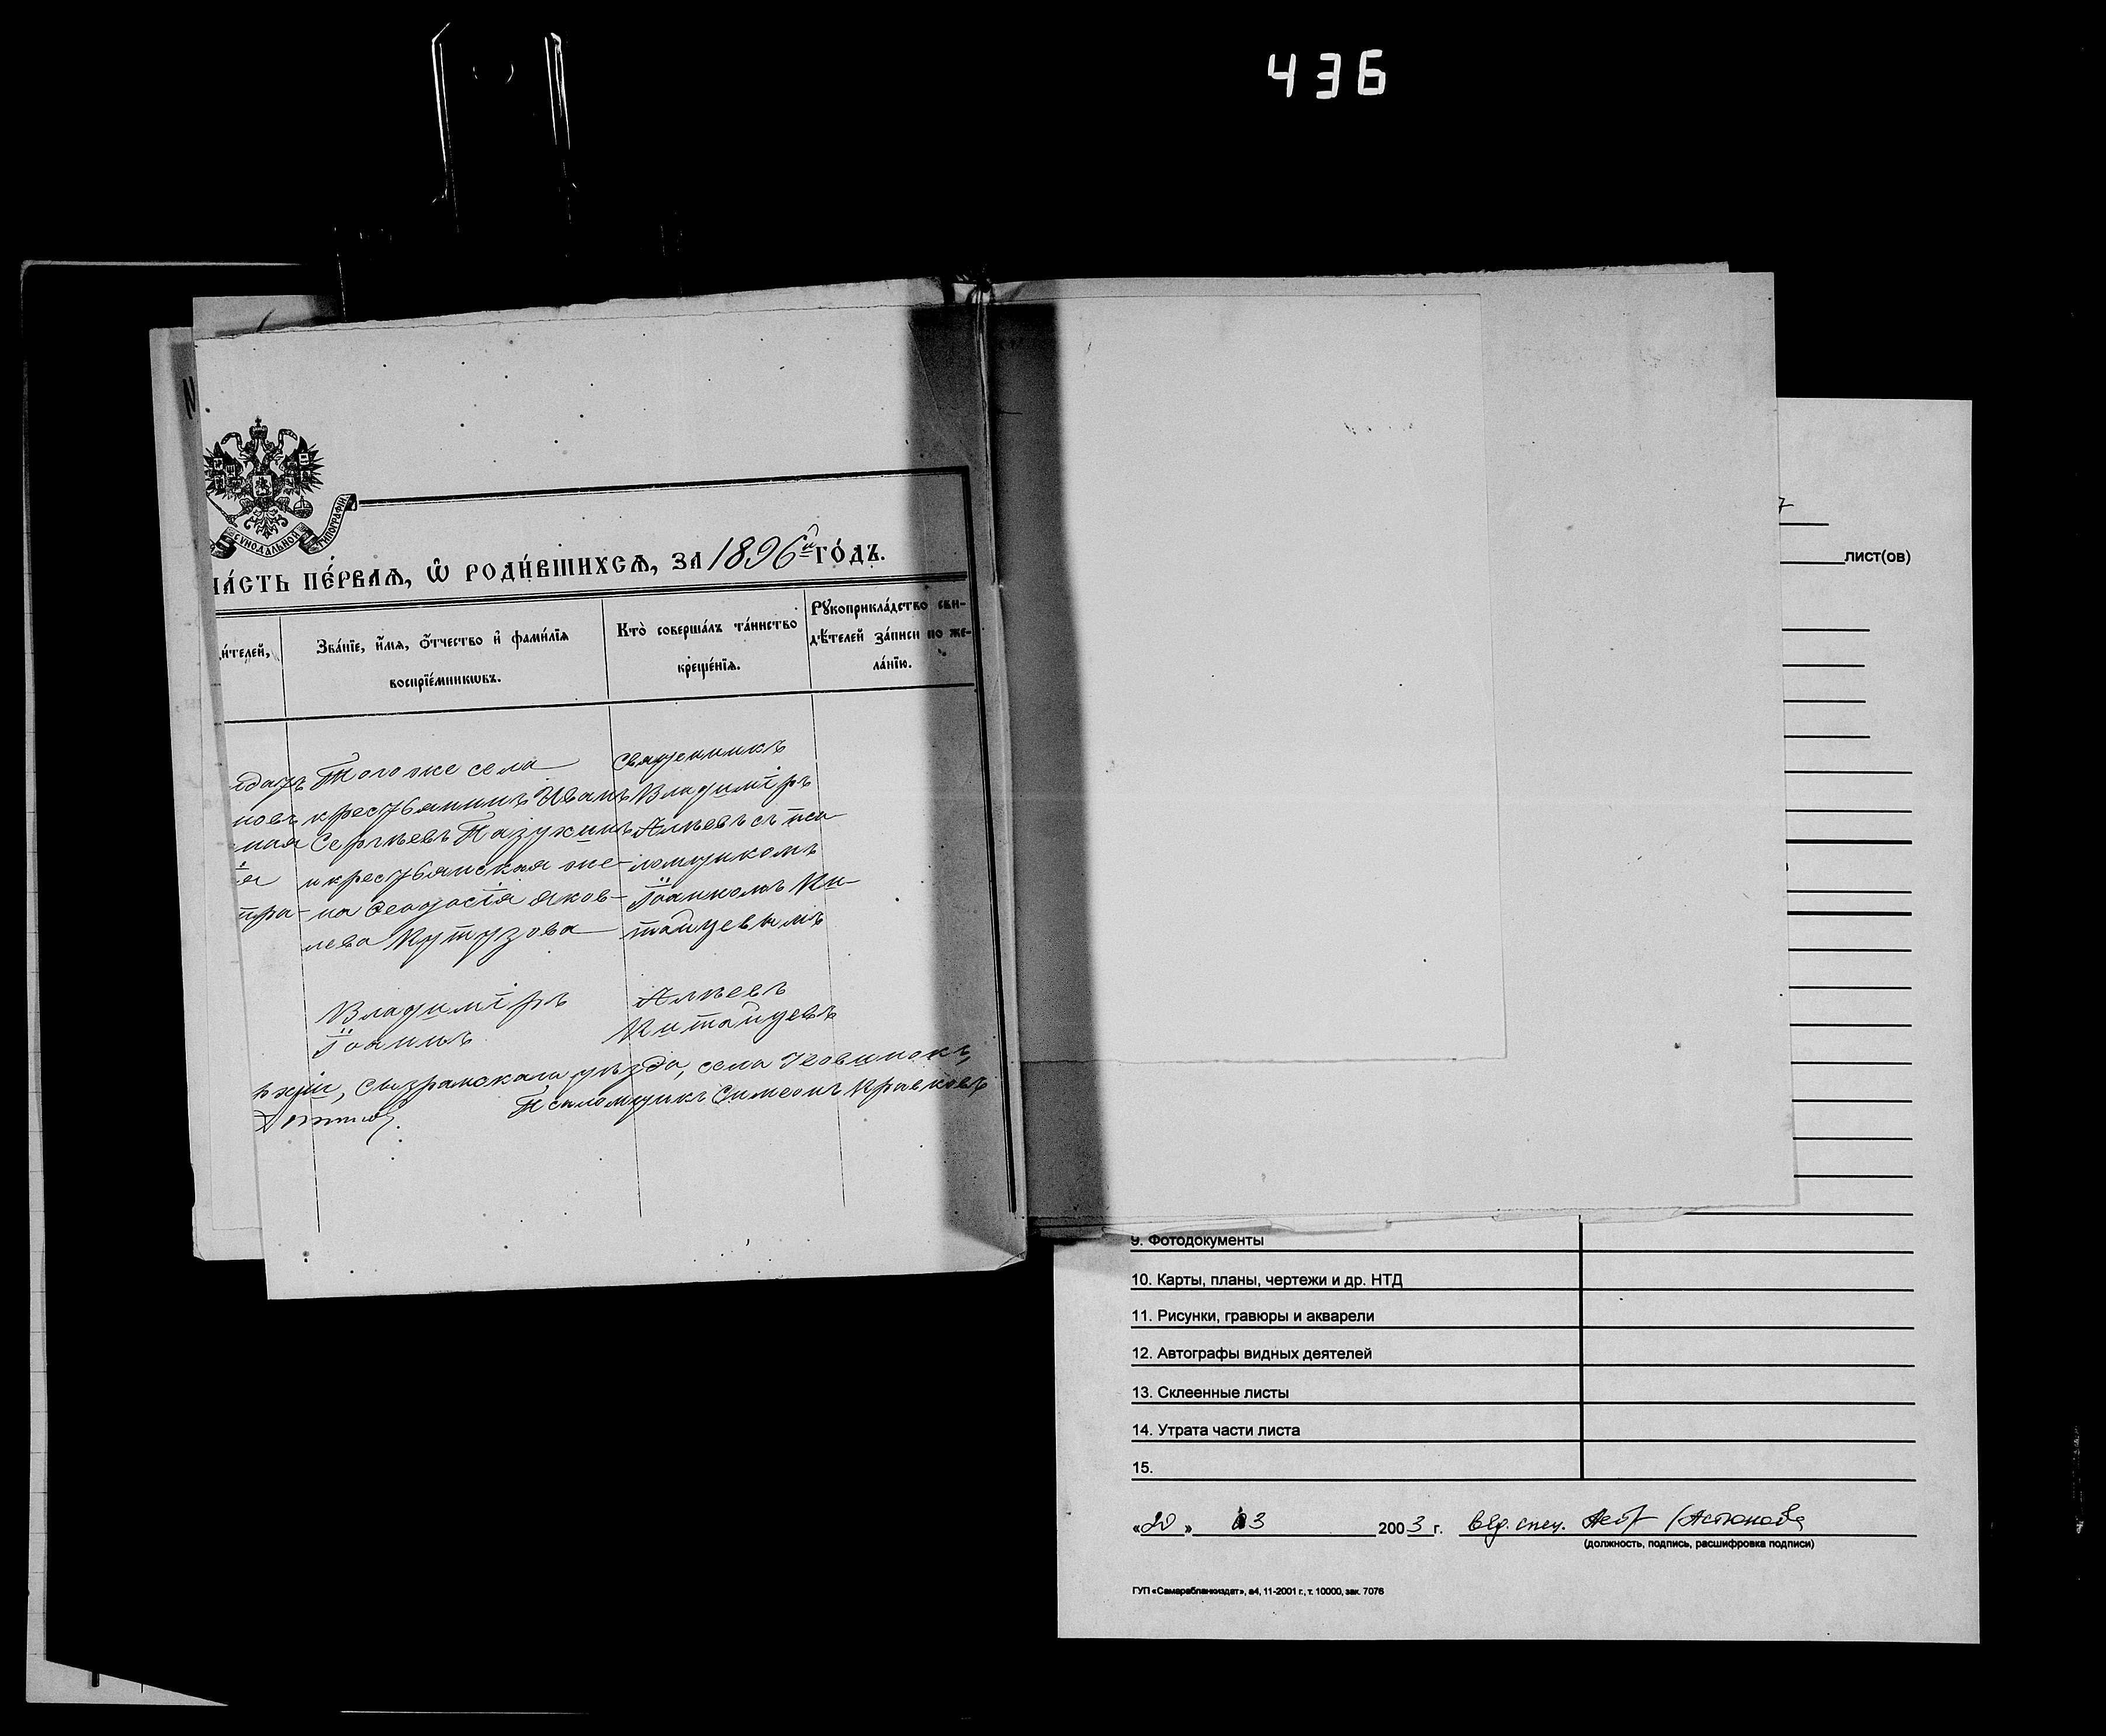 436
СУНОДАЛЬНОЙ ТИПОГРАФІИ
ЧА́СТЬ ПЕ́РВАѦ, Ѡ҆ РОДИ́ВШИХСѦ, ЗА 1896й ГО́ДЪ.
дителей,
Зва́нїе, и҆́мѧ, ѻ҆́тчество и҆ фами́лїѧ
воспрїе́мникѡвъ.
Кто̀ соверша́лъ та́инство
креще́нїѧ.
Рꙋкоприкла́дство сви-
дѣ́телей за́писи по же-
ла́нїю.
Того же села
крестьянинъ Иванъ
Сергѣевъ Пазухинъ
и крестьянская же-
на Ѳеодосія Яков-
лева Кутузова
Священникъ
Владиміръ
Алѣевъ съ пса-
ломщикомъ
Іоанномъ Ки-
тайцевымъ
Владиміръ Алѣевъ
Іоаннъ Китайцевъ
Сызранскаго уѣзда, села
Псаломщикъ Симеонъ Кравковъ
лист(ов)
9. Фотодокументы
10. Карты, планы, чертежи и др. НТД
11. Рисунки, гравюры и акварели
12. Автографы видных деятелей
13. Склеенные листы
14. Утрата части листа
15.
«20» 03 2003 г. вед. спец.
(должность, подпись, расшифровка подписи)
ГУП «Самарабланкиздат», а4, 11-2001 г., т. 10000, зак. 7076